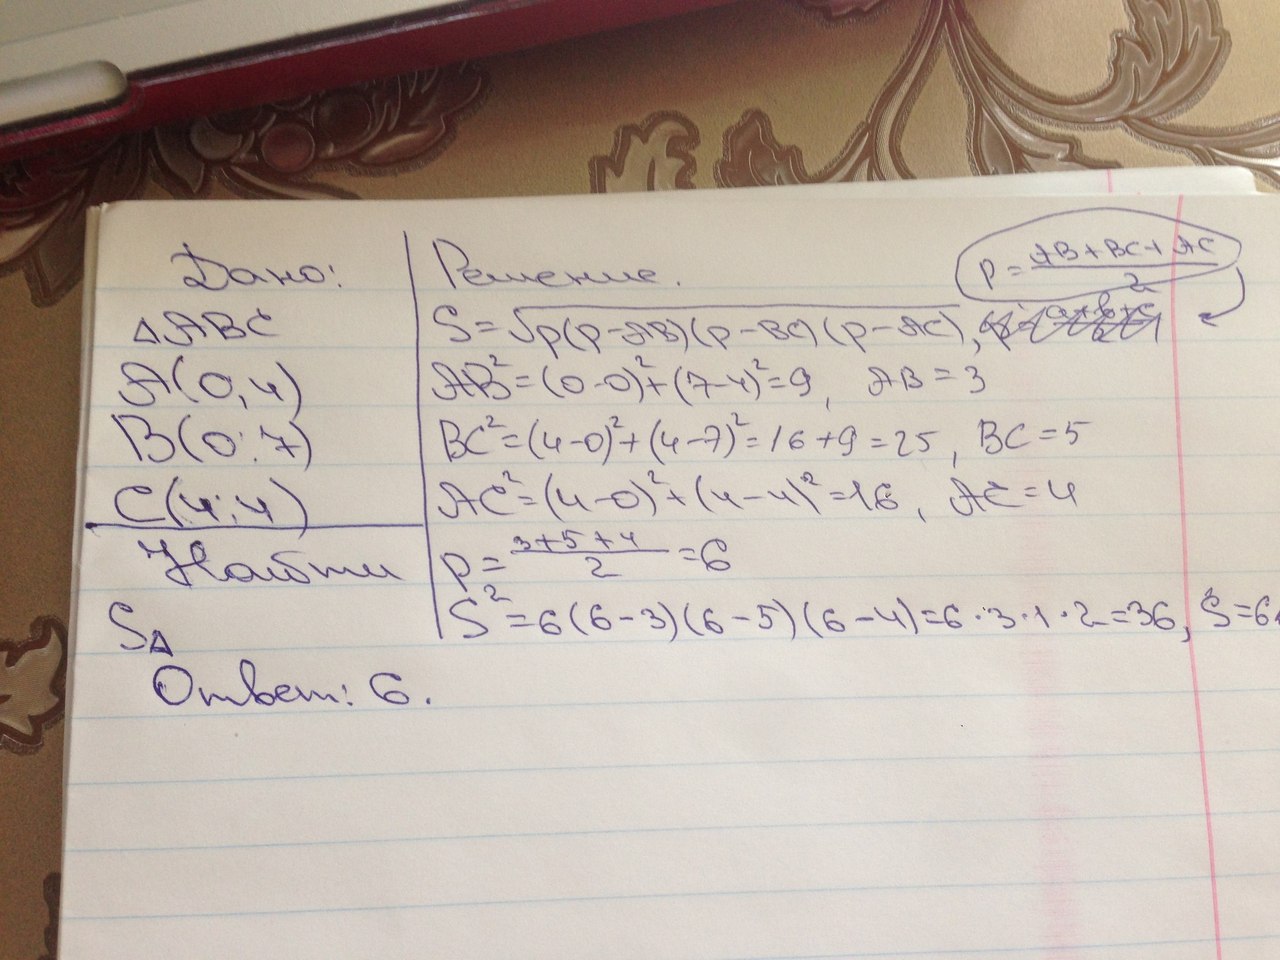 Дано:
△ABC
A(0,4)
B(0;7)
C(4;4)
Найти
S△
Решение.
p = (AB+BC+AC)/2
S=√p(p-AB)(p-BC)(p-AC),
AB²=(0-0)²+(7-4)²=9, AB=3
BC²=(4-0)²+(4-7)²=16+9=25, BC=5
AC²=(4-0)²+(4-4)²=16, AC=4
p=(3+5+4)/2=6
S²=6(6-3)(6-5)(6-4)=6·3·1·2=36, S=6
Ответ: 6.